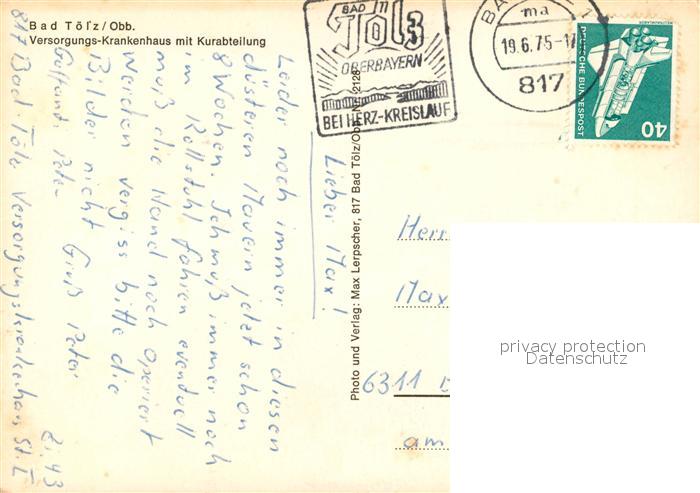 Bad Tölz/Obb.
Versorgungs-Krankenhaus mit Kurabteilung
BAD
Tölz
OBERBAYERN
BEI HERZ-KREISLAUF
19.6.75-17
817
DEUTSCHE BUNDESPOST
40
Photo und Verlag: Max Lerpscher, 817 Bad Tölz/Obb. Nr. 2128
Lieber Max!
Leider noch immer in diesen
düsteren Mauern jetzt schon
8 Wochen. Ich muß immer noch
im Rollstuhl fahren eventuell
muß die Wand noch operiert
werden vergiss bitte die
Bilder nicht Gruß Peter
Peter
817 Bad Tölz Versorgungskrankenhaus St. I
Zi. 43
Herr
Max
6311
am
privacy protection
Datenschutz